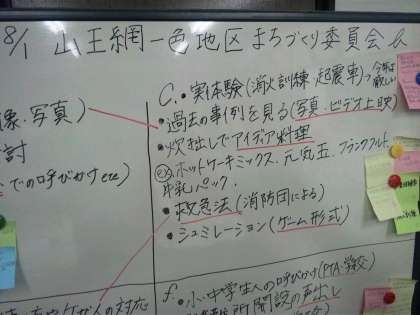 8/1 山王網一色地区 まちづくり委員会
C.・実体験(消火訓練・起震車)
・過去の事例を見る(写真・ビデオ上映)
・炊き出しでアイディア料理
ex ホットケーキミックス、元気玉、フランクフルト、
牛乳パック、
・救急法(消防団による)
・シュミレーション(ゲーム形式)
像・写真)
討
での呼びかけetc)
の対応
f・小・中学生への呼びかけ(PTA・学校)
所開設の声出し